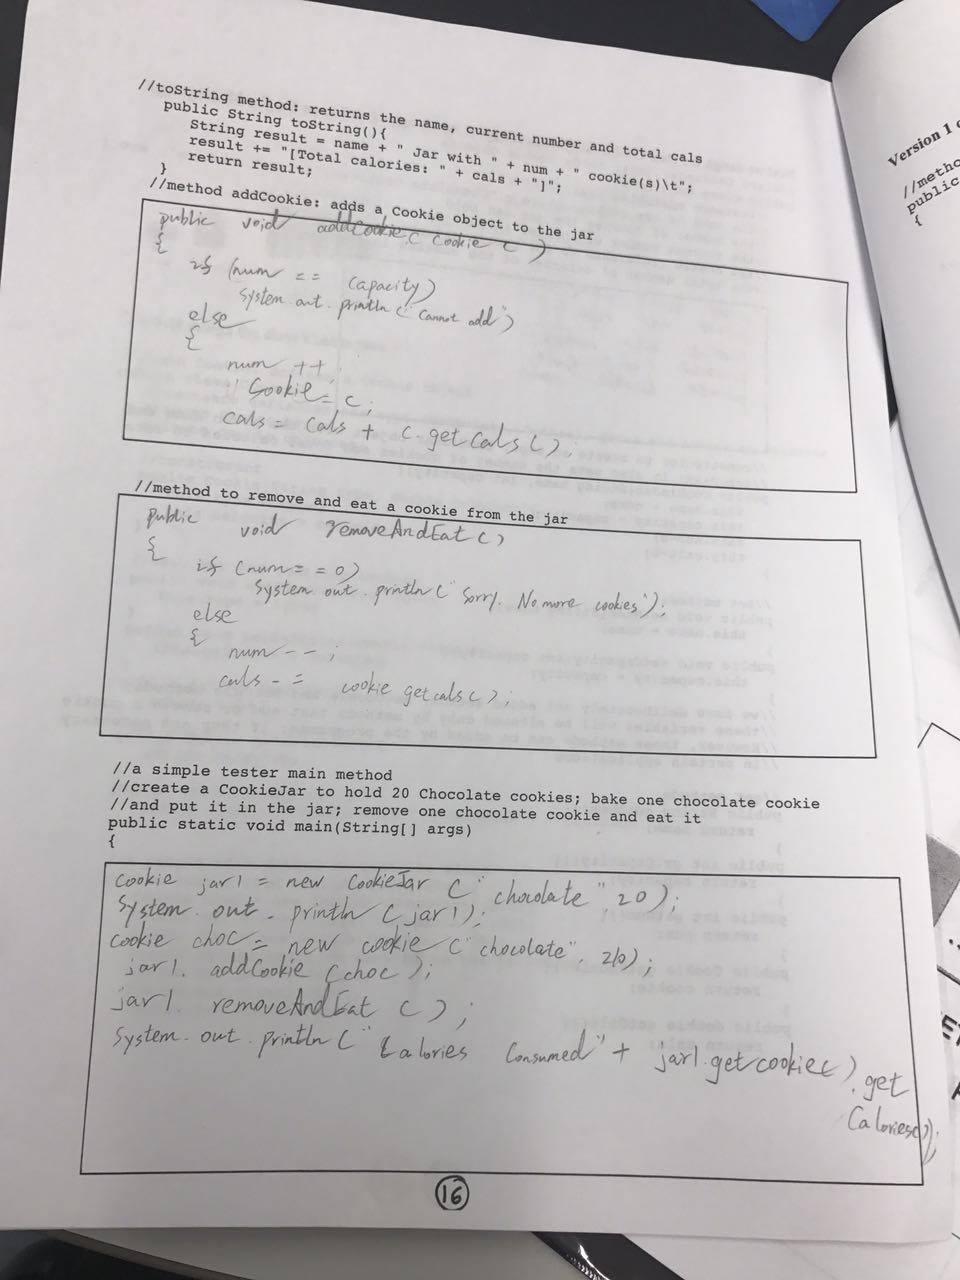 //toString method: returns the name, current number and total cals
public String toString(){
String result = name + " Jar with " + num + " cookie(s)\t";
result += "[Total calories: " + cals + "]";
return result;
}
//method addCookie: adds a Cookie object to the jar
public void addCookie ( Cookie c )
{
if (num == Capacity)
System.out.println ("Cannot add")
else
{
num ++
Cookie = c;
cals = cals + c.getCals ( );
//method to remove and eat a cookie from the jar
public void removeAndEat ( )
{
if (num == 0)
System.out.println (" Sorry. No more cookies");
else
{
num -- ;
cals -= cookie getcals ( );
//a simple tester main method
//create a CookieJar to hold 20 Chocolate cookies; bake one chocolate cookie
//and put it in the jar; remove one chocolate cookie and eat it
public static void main(String[] args)
{
Cookie jar1 = new CookieJar (" chocolate ", 20);
System.out.println (jar1);
Cookie choc = new cookie (" chocolate", 210);
jar1. addCookie (choc );
jar1. removeAndEat ( );
System.out.println (" Calories Consumed" + jar1.getcookie( ).get
Calories());
16
Version 1
//metho
public
{